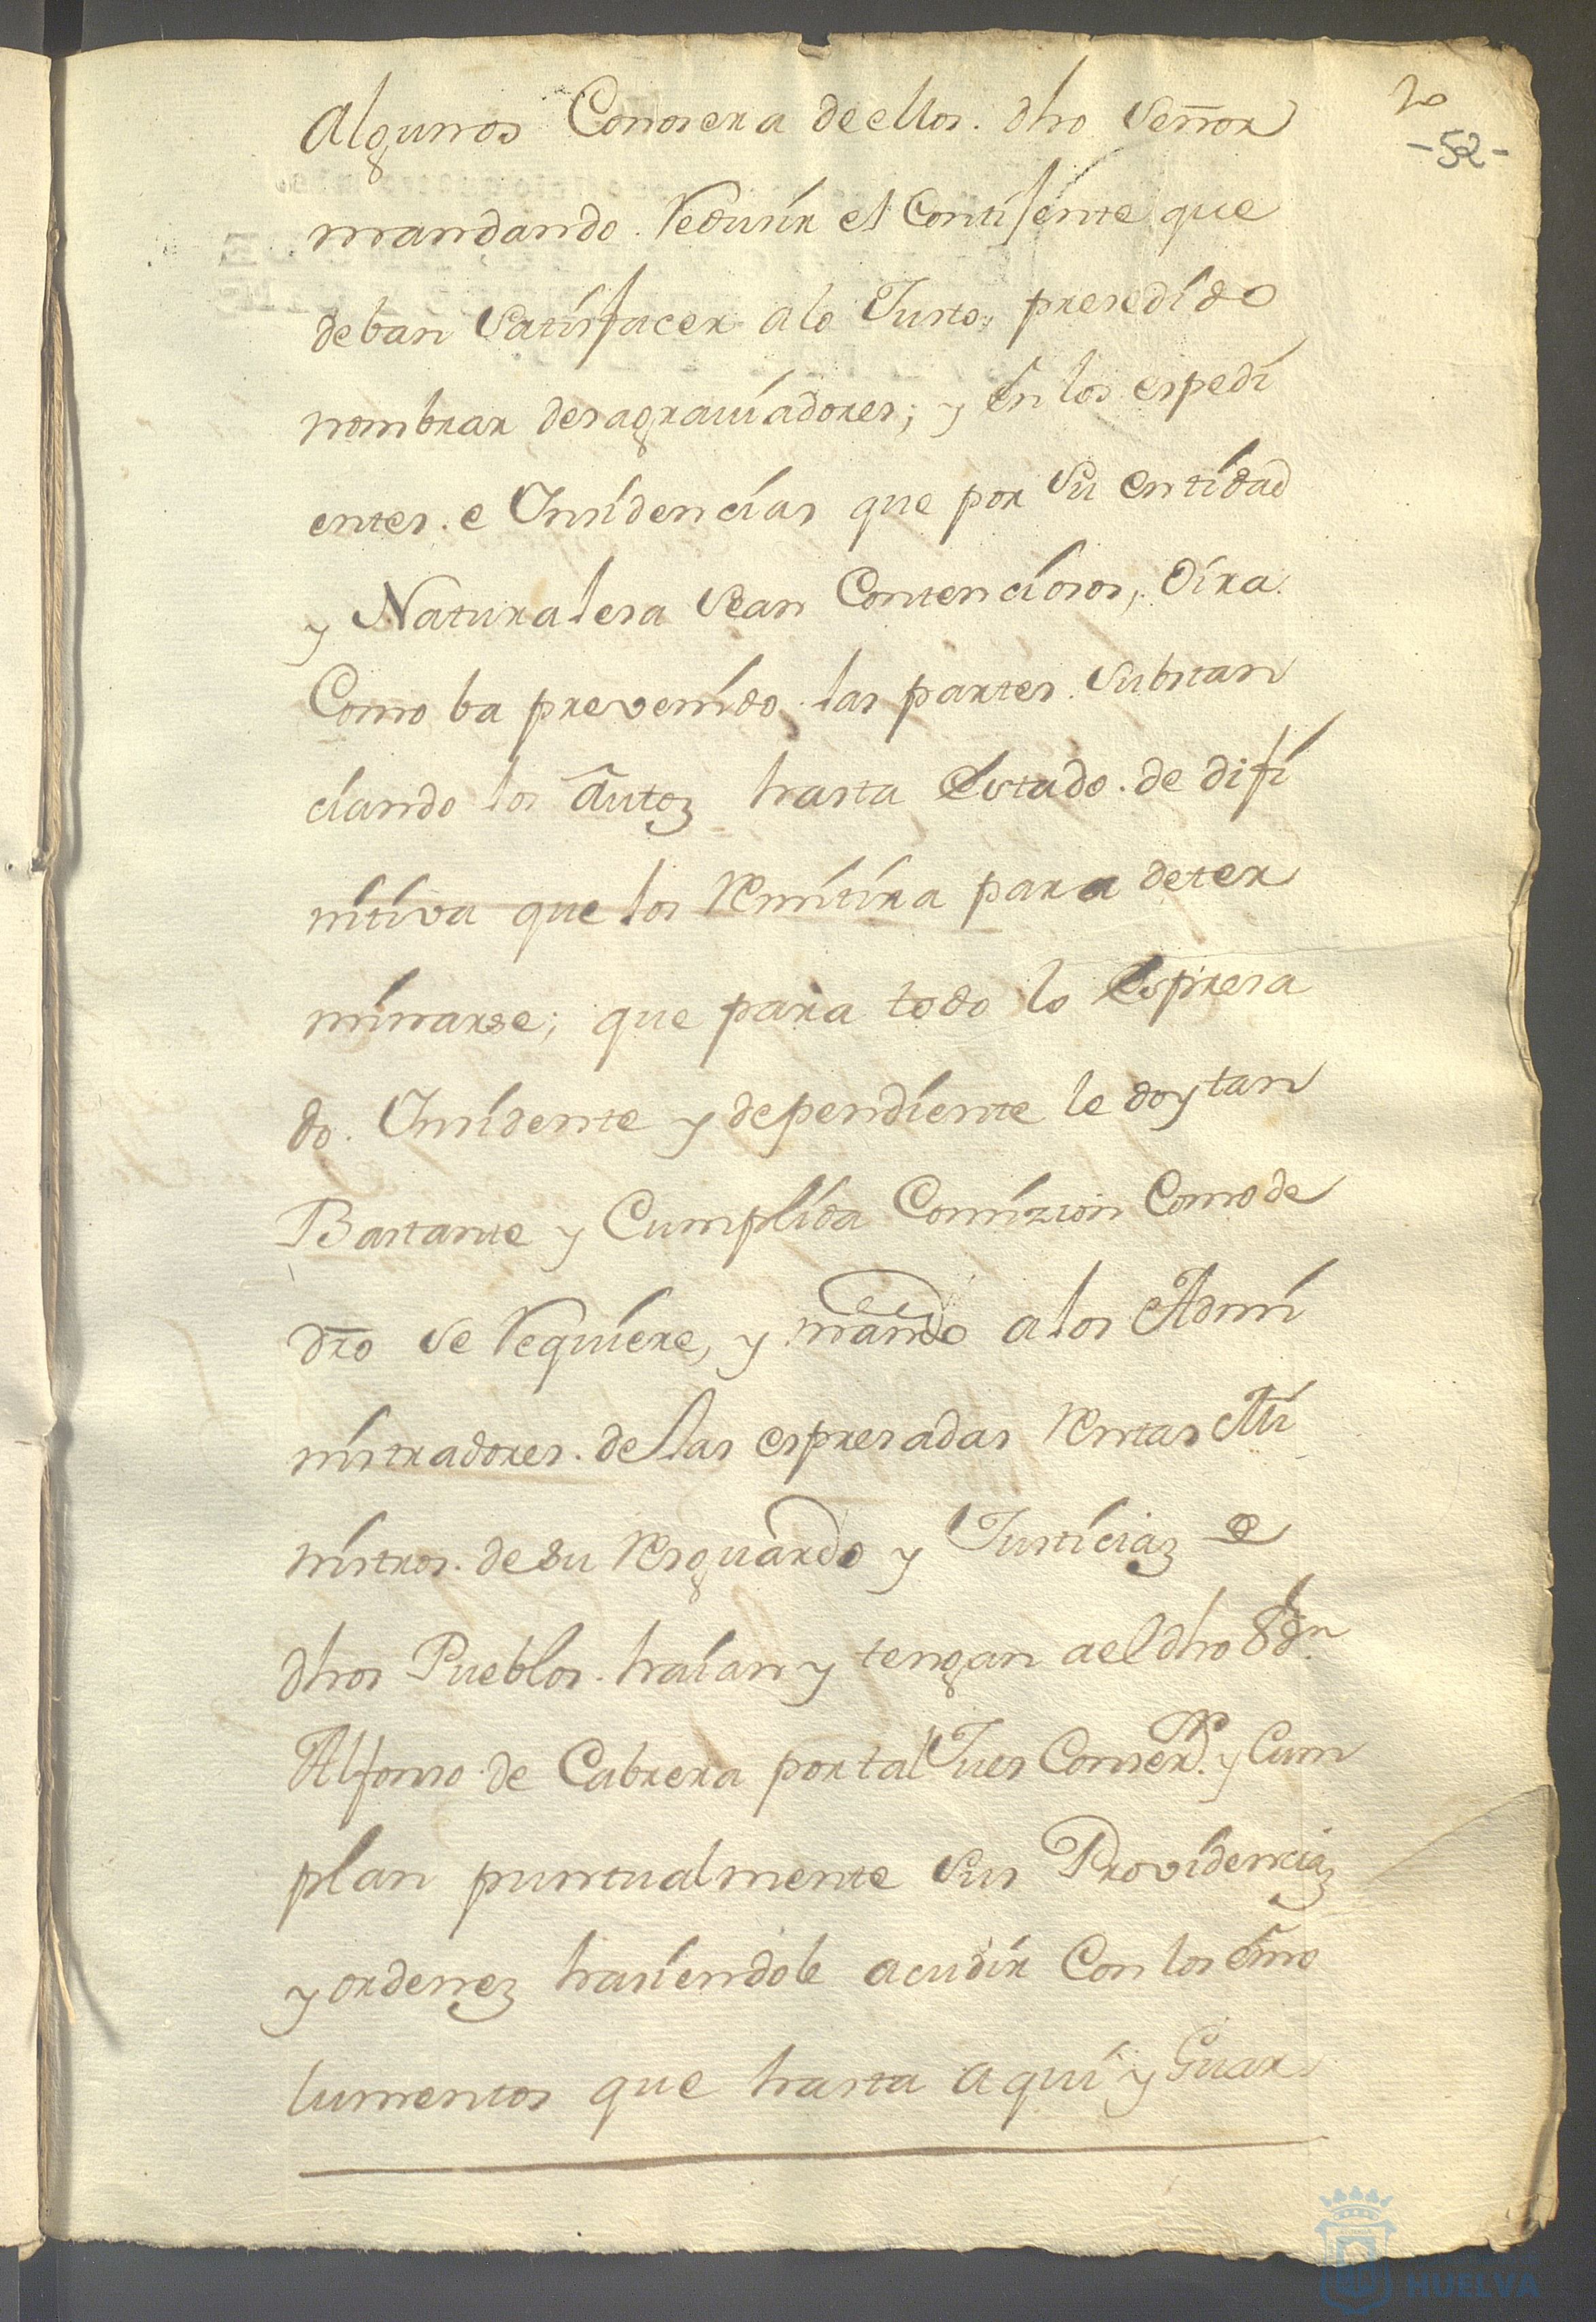 2o
-52-
Algunos Conosera de ellos. dho Señor
mandando. Redusir el Contisente que
deban Satisfacer a lo Justo, presedido
nombrar desagraviadores; y en los espedi
entes. e Insidencias que por su entidad
y Naturalesa Sean Contenciosos, Oira
Como ba prevenido las partes. Substan
ciando los Autoz hasta Estado. de difi
nitiva que los Remitira para deter
minarse; que para todo lo Espresa
do. Insidente y dependiente le doy tan
Bastante y Cumplida Comizion Como de
dro se Requiere, y mando a los Admi
nistradores. de las espresadas Rentas Mi
nistros. de su Resguardo y Justiciaz e
dhos Pueblos. haian y tengan a el dho S.r dn
Alfonso de Cabrera por tal Jues Conser.r y Cum
plan puntualmente sus Providenciaz
y ordenez hasiendole acudir Con los emo
lumentos que hasta aqui y Guar
HUELVA